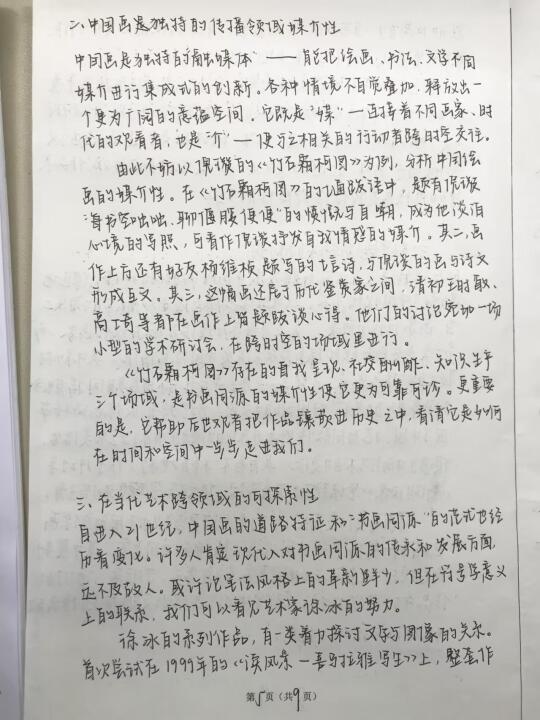 二、中国画是独特的传播领域媒介性
中国画是独特的“融媒体”——自然把绘画、书法、文学不同
媒介进行集成式的创新。各种情境不自觉叠加，释放出一
个更为广阔的意蕴空间。它既是“媒”——连接着不同画家、时
代的观看者，也是“介”——使与之相关的行动者跨时空交往。
由此不妨以倪瓒的《竹石霜柯图》为例，分析中国绘
画的媒介性。在《竹石霜柯图》的题跋语中，题有倪瓒
“书空咄咄，聊偃腹便便”的愤慨与自嘲，成为他淡泊
心境的写照，可看作倪瓒抒发自我情感的媒介。其二，画
作上后还有好友杨维桢题写的七言诗，与倪瓒的画与诗文
形成互文。其三，这幅画还居于历代鉴赏家之间，清初王时敏、
高士奇等都在画作上留题跋谈心得。他们的讨论宛如一场
小型的学术研讨会，在跨时空的场域里进行。
《竹石霜柯图》存在的自我呈现、社交酬酢、知识生产
三个场域，是书画同源的媒介性使它更为可靠可诊。更重要
的是，它帮助后世观者把作品镶嵌进历史之中，看清它是如何
在时间和空间中一步步走进我们。
三、在当代艺术跨领域的可探索性
自进入21世纪，中国画的道路特征和“书画同源”的范式也经
历着变化。许多人肯定现代人对书画同源的传承和发展方面，
还不及故人。或许论笔法风格上的革新鲜少，但在符号学意义
上的联系，我们可以看见艺术家徐冰的努力。
徐冰的系列作品，有一类着力探讨文字与图像的关系。
首次尝试在1999年的《读风景—喜马拉雅写生》上，整套作
第5页（共9页）